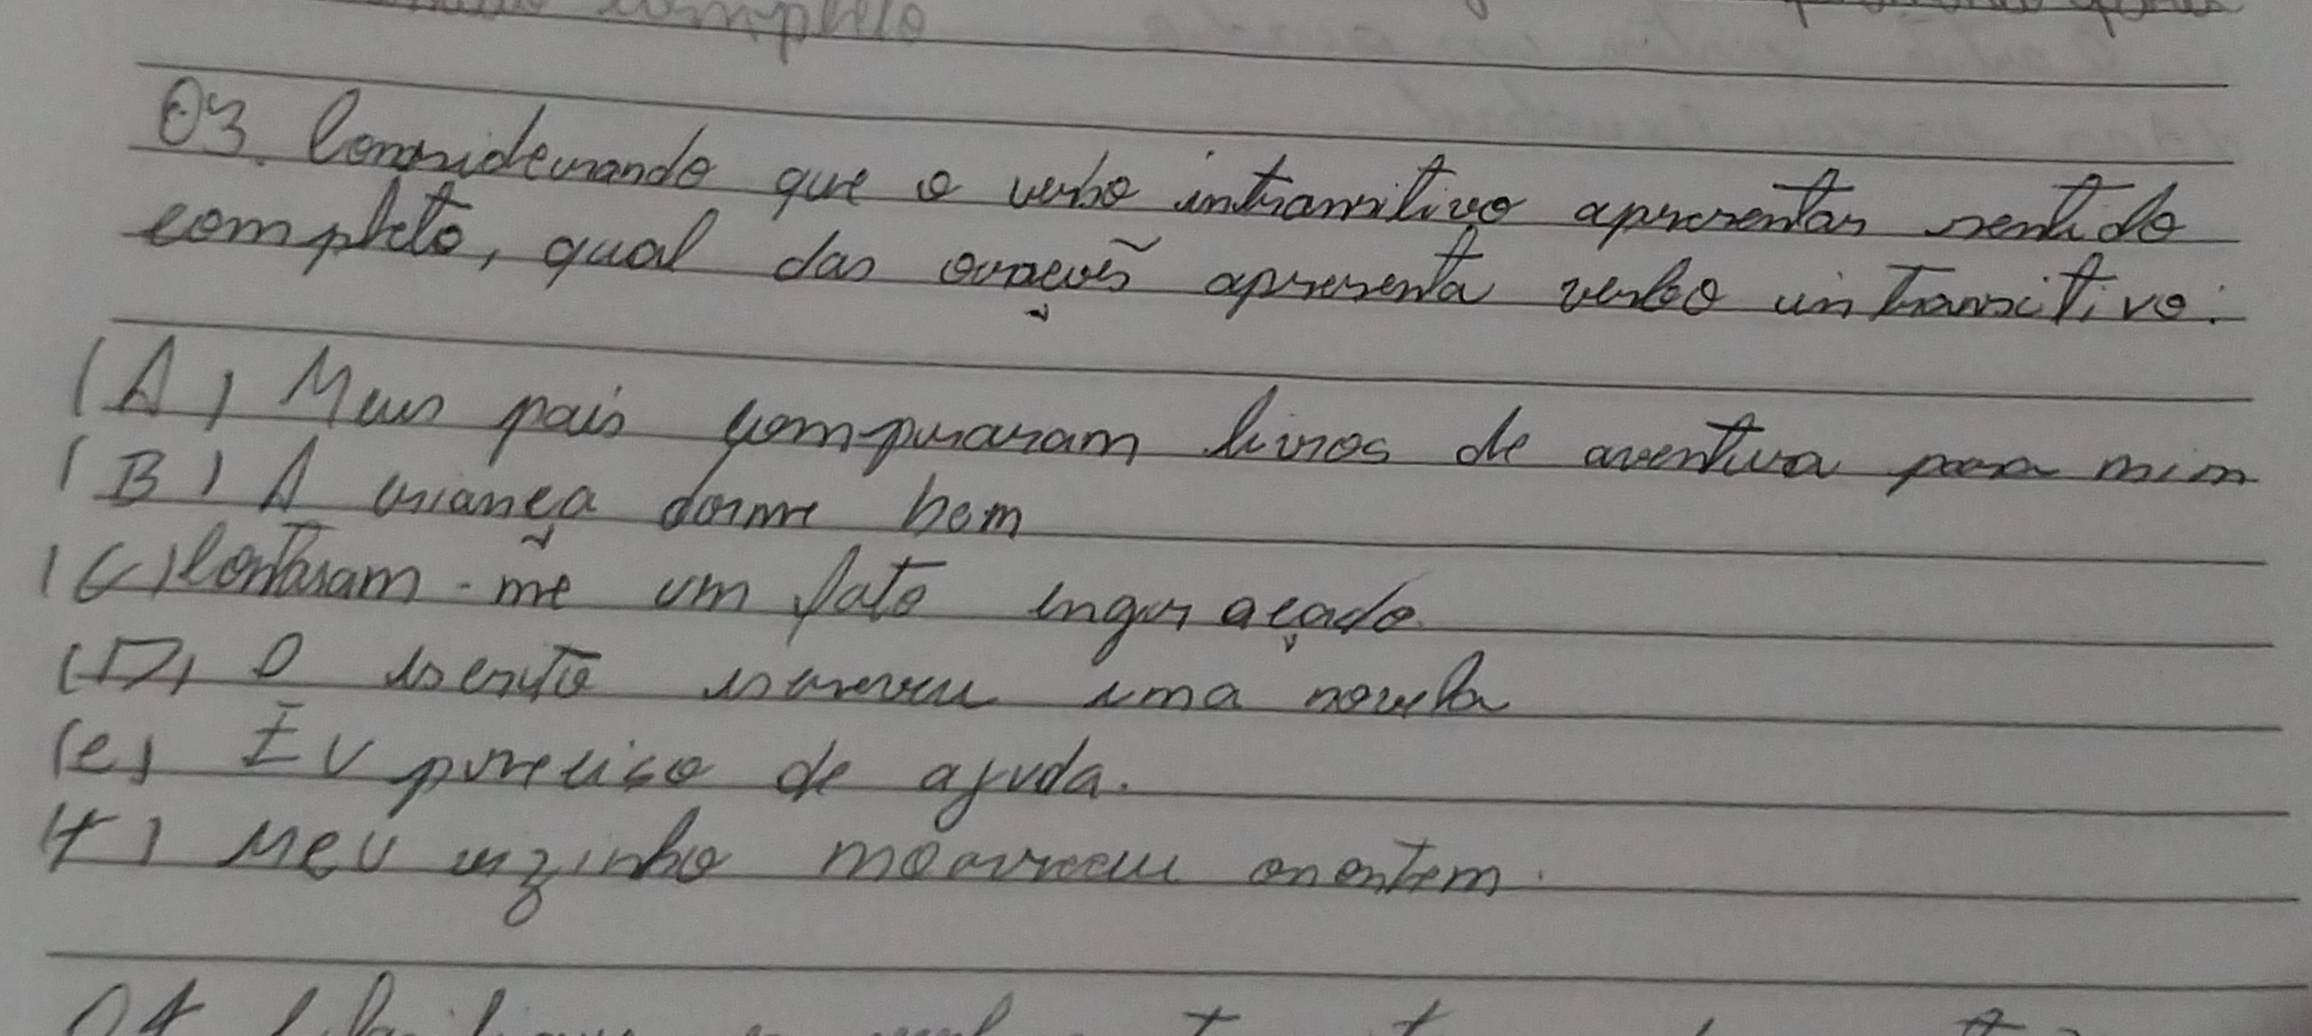 completo
03. Considerando que o verbo intransitivo apresentar sentido
completo, qual das orações apresenta verbo intransitivo:
(A) Meus pais compraram livros de aventura para mim
(B) A criança dorme bem
(C) Contaram-me um fato engraçado
(D) O escrito escreveu uma novela
(e) Eu preciso de ajuda.
(F) Meu vizinho morreu onontem.
04